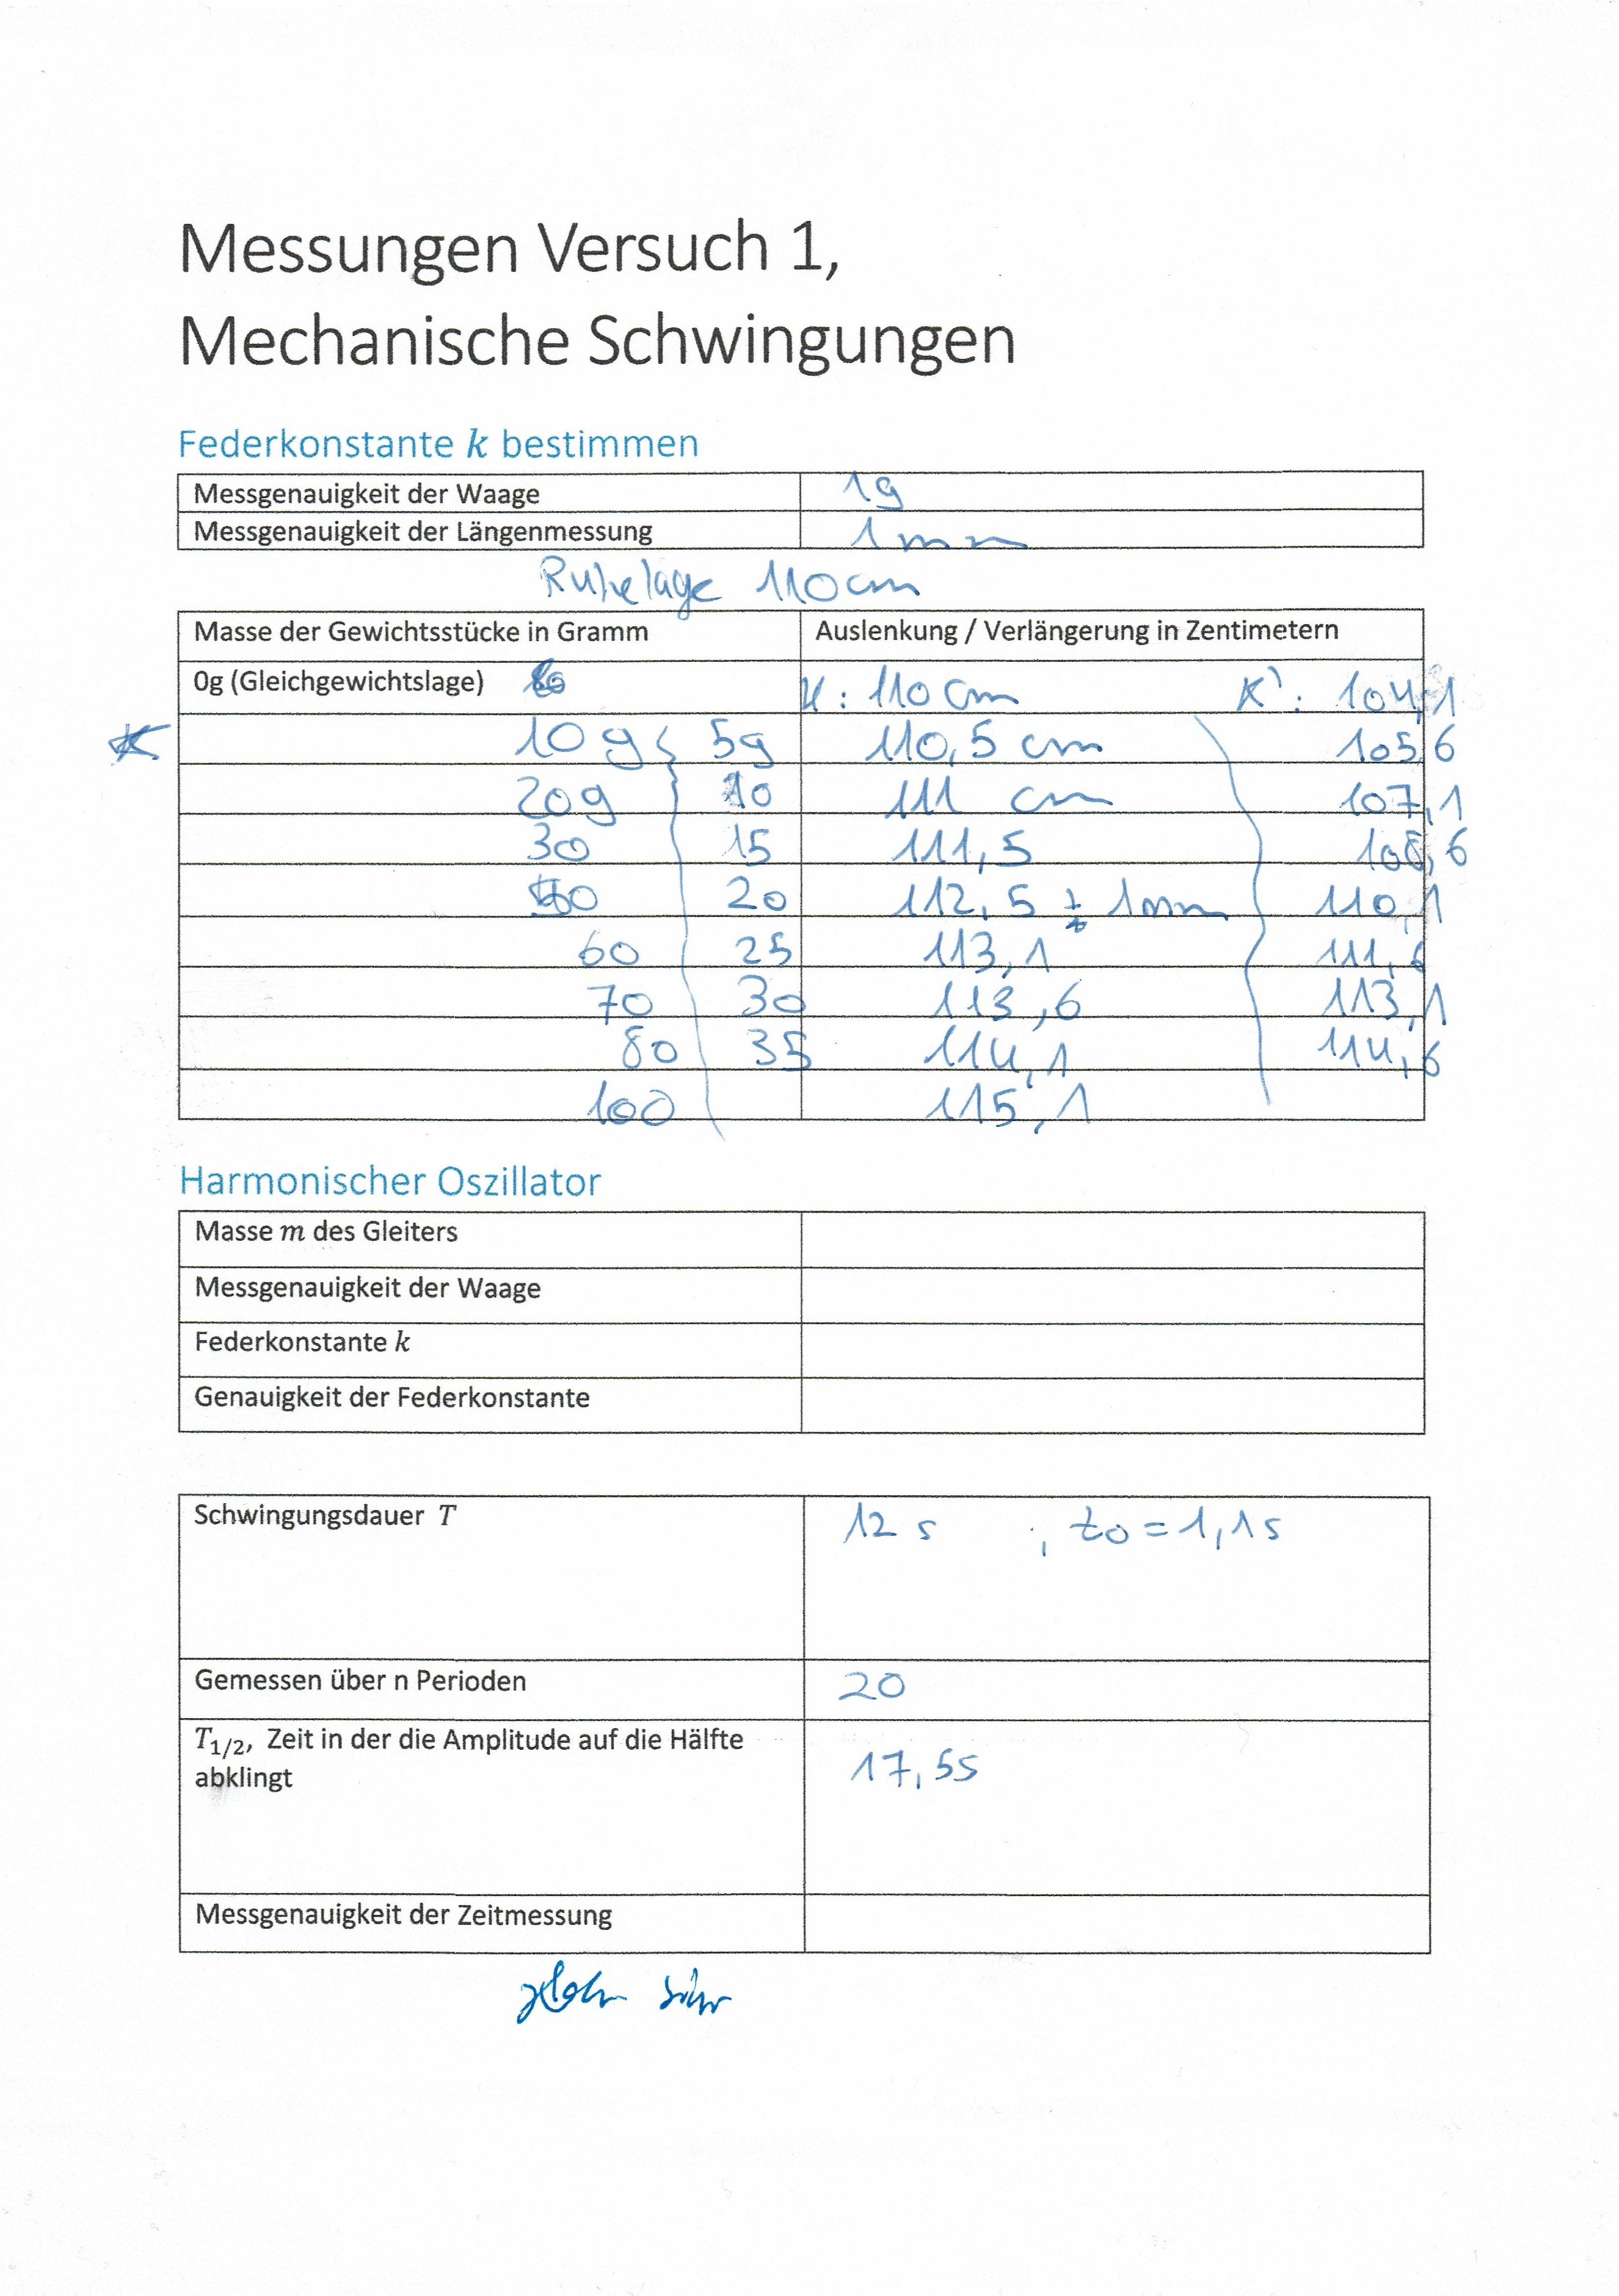 Messungen Versuch 1,
Mechanische Schwingungen
Federkonstante k bestimmen
Messgenauigkeit der Waage 1g
Messgenauigkeit der Längenmessung 1mm
Ruhelage 110cm
Masse der Gewichtsstücke in Gramm Auslenkung / Verlängerung in Zentimetern
0g (Gleichgewichtslage) K: 110 cm K': 104,1
10g 5g 110,5 cm 105,6
20g 10 111 cm 107,1
30 15 111,5 108,6
20 112,5 ± 1mm 110,1
60 25 113,1 111,6
70 30 113,6 113,1
80 35 114,1 114,6
100 115,1
Harmonischer Oszillator
Masse m des Gleiters
Messgenauigkeit der Waage
Federkonstante k
Genauigkeit der Federkonstante
Schwingungsdauer T 12 s ; t0 = 1,1s
Gemessen über n Perioden 20
T1/2, Zeit in der die Amplitude auf die Hälfte
abklingt 17,5s
Messgenauigkeit der Zeitmessung